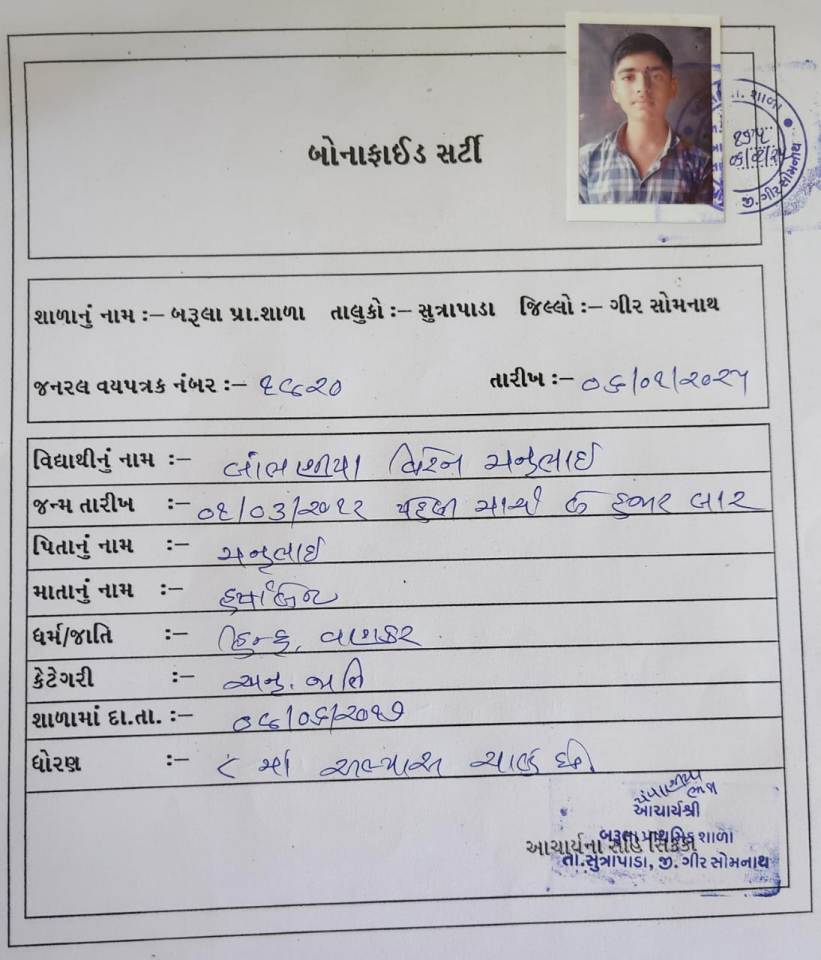 બોનાફાઈડ સર્ટી
પ્રા. શાળા
જી. ગીર સોમનાથ
શાળાનું નામ :– બરૂલા પ્રા.શાળા તાલુકો :– સુત્રાપાડા જિલ્લો :– ગીર સોમનાથ
જનરલ વયપત્રક નંબર :– ૧૯૨૦
તારીખ :– ૦૬/૦૧/૨૦૨૫
વિદ્યાથીનું નામ :– બાંભણીયા મનુભાઈ
જન્મ તારીખ :– ૦૧/૦૩/૨૦૧૨ પહેલી માર્ચ બે હજાર બાર
પિતાનું નામ :– મનુભાઈ
માતાનું નામ :– હર્ષાબેન
ધર્મ/જાતિ :– હિન્દુ, વણકર
કેટેગરી :– અનુ. જાતિ
શાળામાં દા.તા. :– ૦૯/૦૬/૨૦૧૭
ધોરણ :– ૮ માં અભ્યાસ ચાલુ છે.
આચાર્યશ્રી
બરૂલા પ્રાથમિક શાળા
આચાર્યના સહિ સિક્કા
તા.સુત્રાપાડા, જી. ગીર સોમનાથ